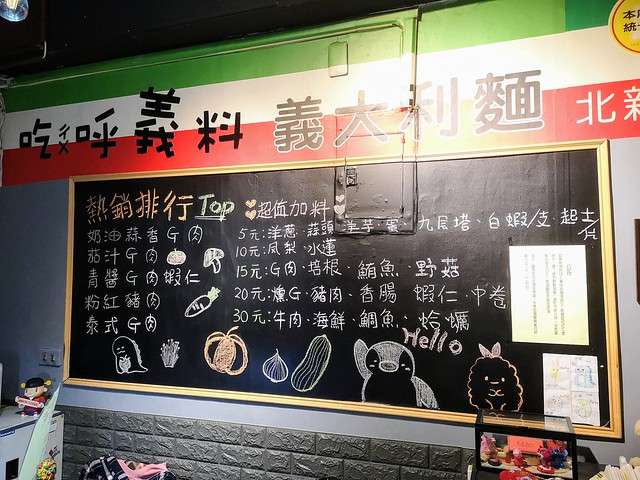 吃ㄔ呼義料 義大利麵 北新
熱銷排行Top
奶油蒜香G肉
茄汁G肉
青醬G肉蝦仁
粉紅豬肉
泰式G肉
超值加料
5元:洋蔥.蒜頭 九層塔、白蝦/支.起士/片
10元:鳳梨.水蓮
15元:G肉.培根.鮪魚.野菇
20元:燻G.豬肉.香腸 蝦仁.中卷
30元:牛肉.海鮮.鯛魚.蛤蠣
Hello